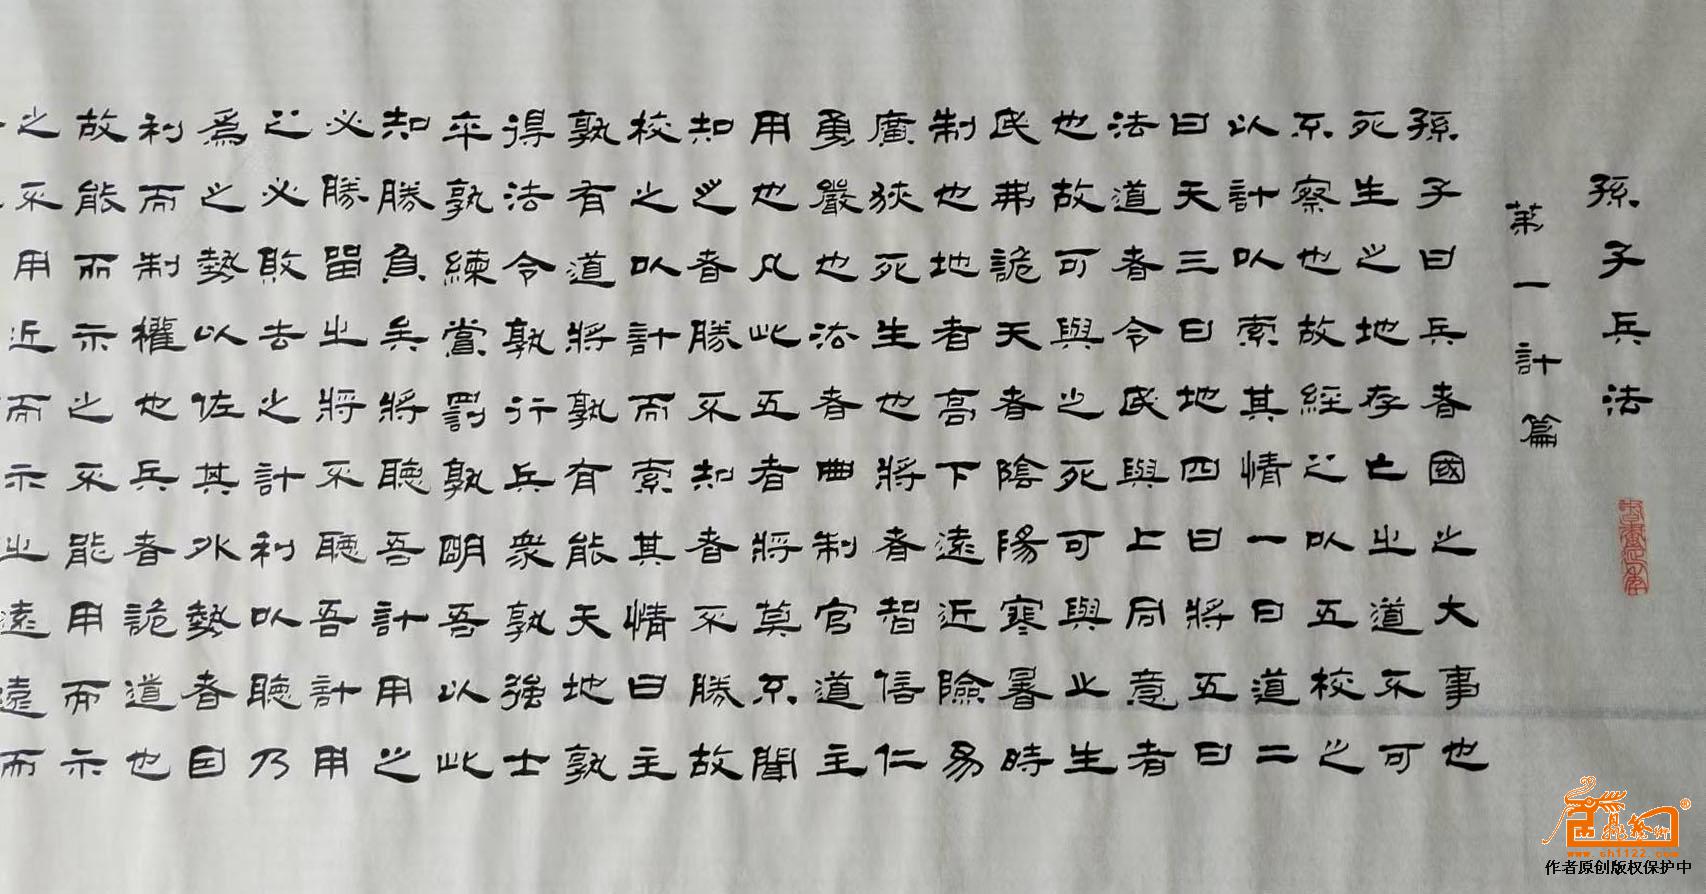 孫子兵法
第一計篇
孫子曰兵者國之大事也
死生之地存亡之道不可
不察也故經之以五校之
以計以索其情一曰道二
曰天三曰地四曰將五曰
法道者令民與上同意者
也故可與之死可與之生
民弗詭天者陰陽寒暑時
制也地者高下遠近險易
廣狹死生也將者智信仁
勇嚴也法者曲制官道主
用也凡此五者將莫不聞
知之者勝不知者不勝故
校之以計而索其情曰主
孰有道將孰有能天地孰
得法令孰行兵衆孰強士
卒孰練賞罰孰明吾以此
知勝負矣將聽吾計用之
必勝留之將不聽吾計用
之必敗去之計利以聽乃
爲之勢以佐其外勢者因
利而制權也兵者詭道也
故能而示之不能用而示
之不用近而示之遠遠而
www.ch1122.com
作者原创版权保护中